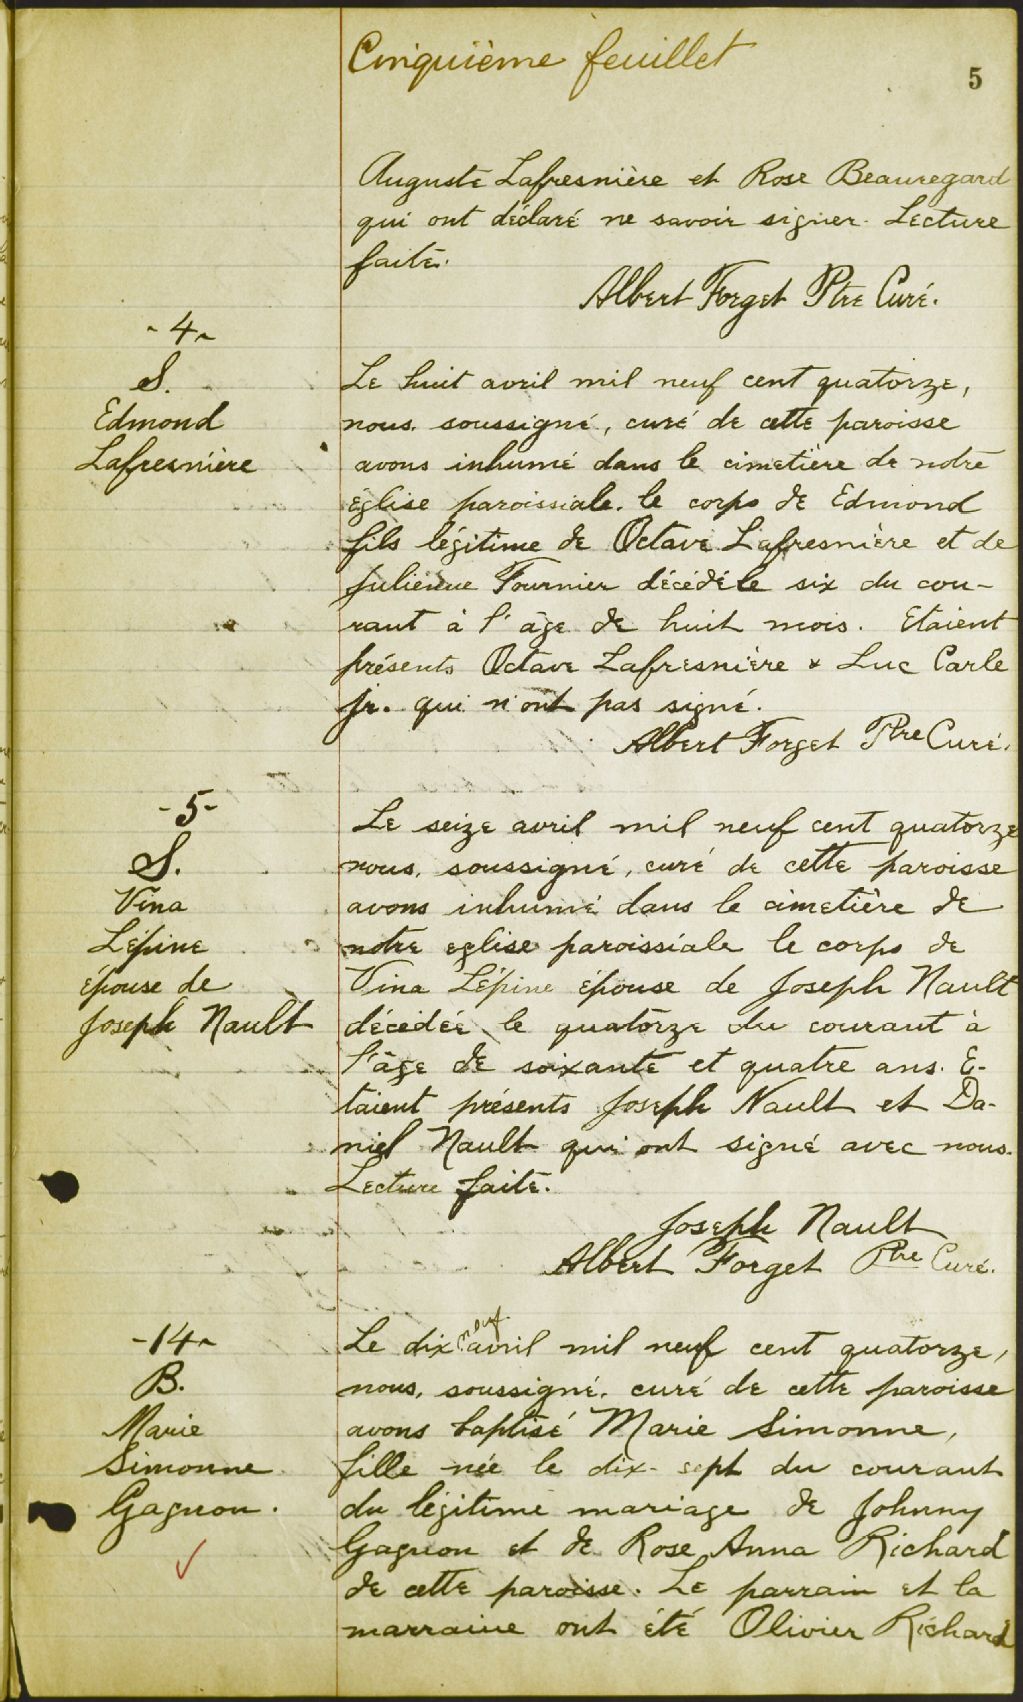 Cinquième feuillet
5
Auguste Lafresnière et Rose Beauregard
qui ont déclaré ne savoir signer. Lecture
faite.
Albert Forget Ptre Curé.
- 4 -
S.
Edmond
Lafresnière
Le huit avril mil neuf cent quatorze,
nous soussigné, curé de cette paroisse
avons inhumé dans le cimetière de notre
église paroissiale le corps de Edmond
fils légitime de Octave Lafresnière et de
Julienne Fournier décédé le six du cou-
rant à l'âge de huit mois. Etaient
présents Octave Lafresnière & Luc Carle
jr. qui n'ont pas signé.
Albert Forget Ptre Curé.
- 5 -
S.
Vina
Lépine
épouse de
Joseph Nault
Le seize avril mil neuf cent quatorze
nous, soussigné, curé de cette paroisse
avons inhumé dans le cimetière de
notre eglise paroissiale le corps de
Vina Lépine épouse de Joseph Nault
décédée le quatorze du courant à
l'âge de soixante et quatre ans. E-
taient présents Joseph Nault et Da-
niel Nault qui ont signé avec nous.
Lecture faite.
Joseph Nault
Albert Forget Ptre Curé.
- 14 -
B.
Marie
Simonne
Gagnon.
Le dix neuf avril mil neuf cent quatorze,
nous, soussigné, curé de cette paroisse
avons baptisé Marie Simonne,
fille née le dix-sept du courant
du légitime mariage de Johnny
Gagnon et de Rose Anna Richard
de cette paroisse. Le parrain et la
marraine ont été Olivier Richard